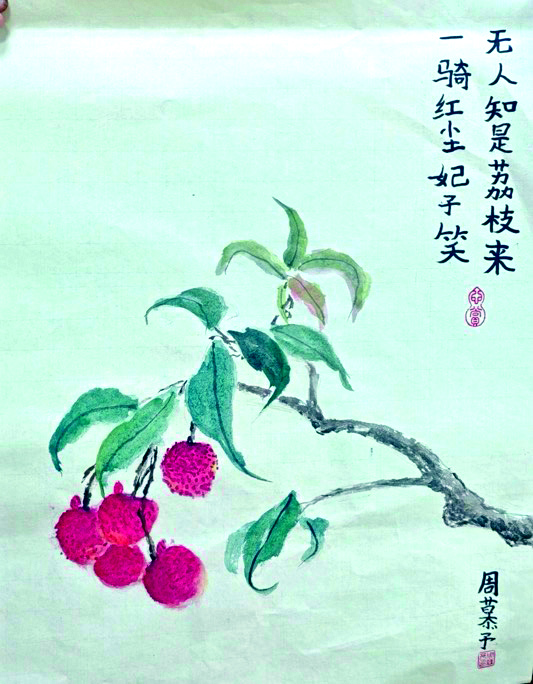 一骑红尘妃子笑
无人知是荔枝来
周慕予